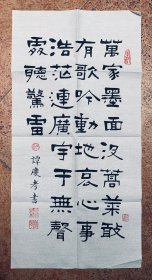 萬家墨面沒蒿萊敢
有歌吟動地哀心事
浩茫連廣宇于無聲
處聽驚雷
譚慶書